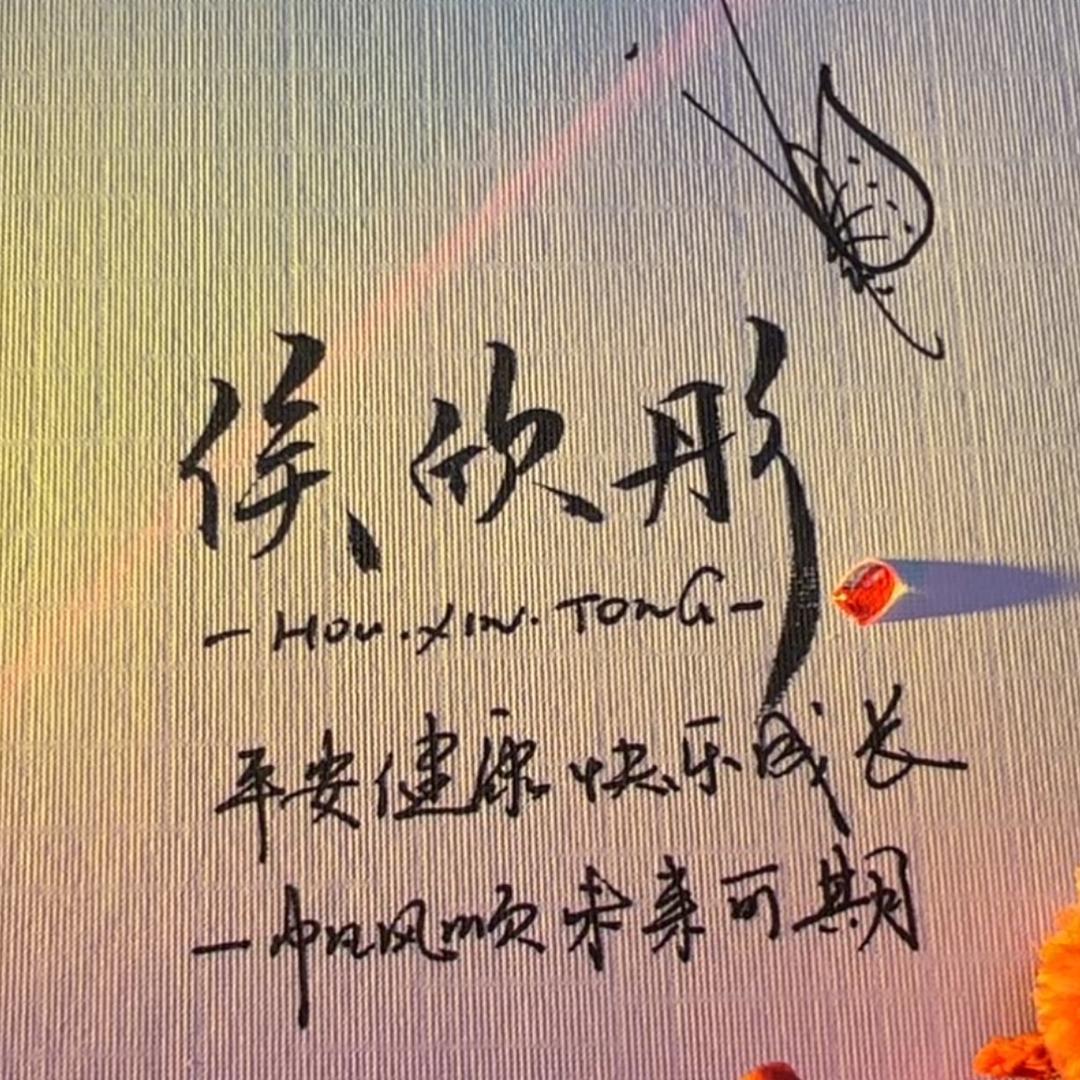 侯欣彤
-HOU.XIN.TONG-
平安健康快乐成长
一帆风顺未来可期